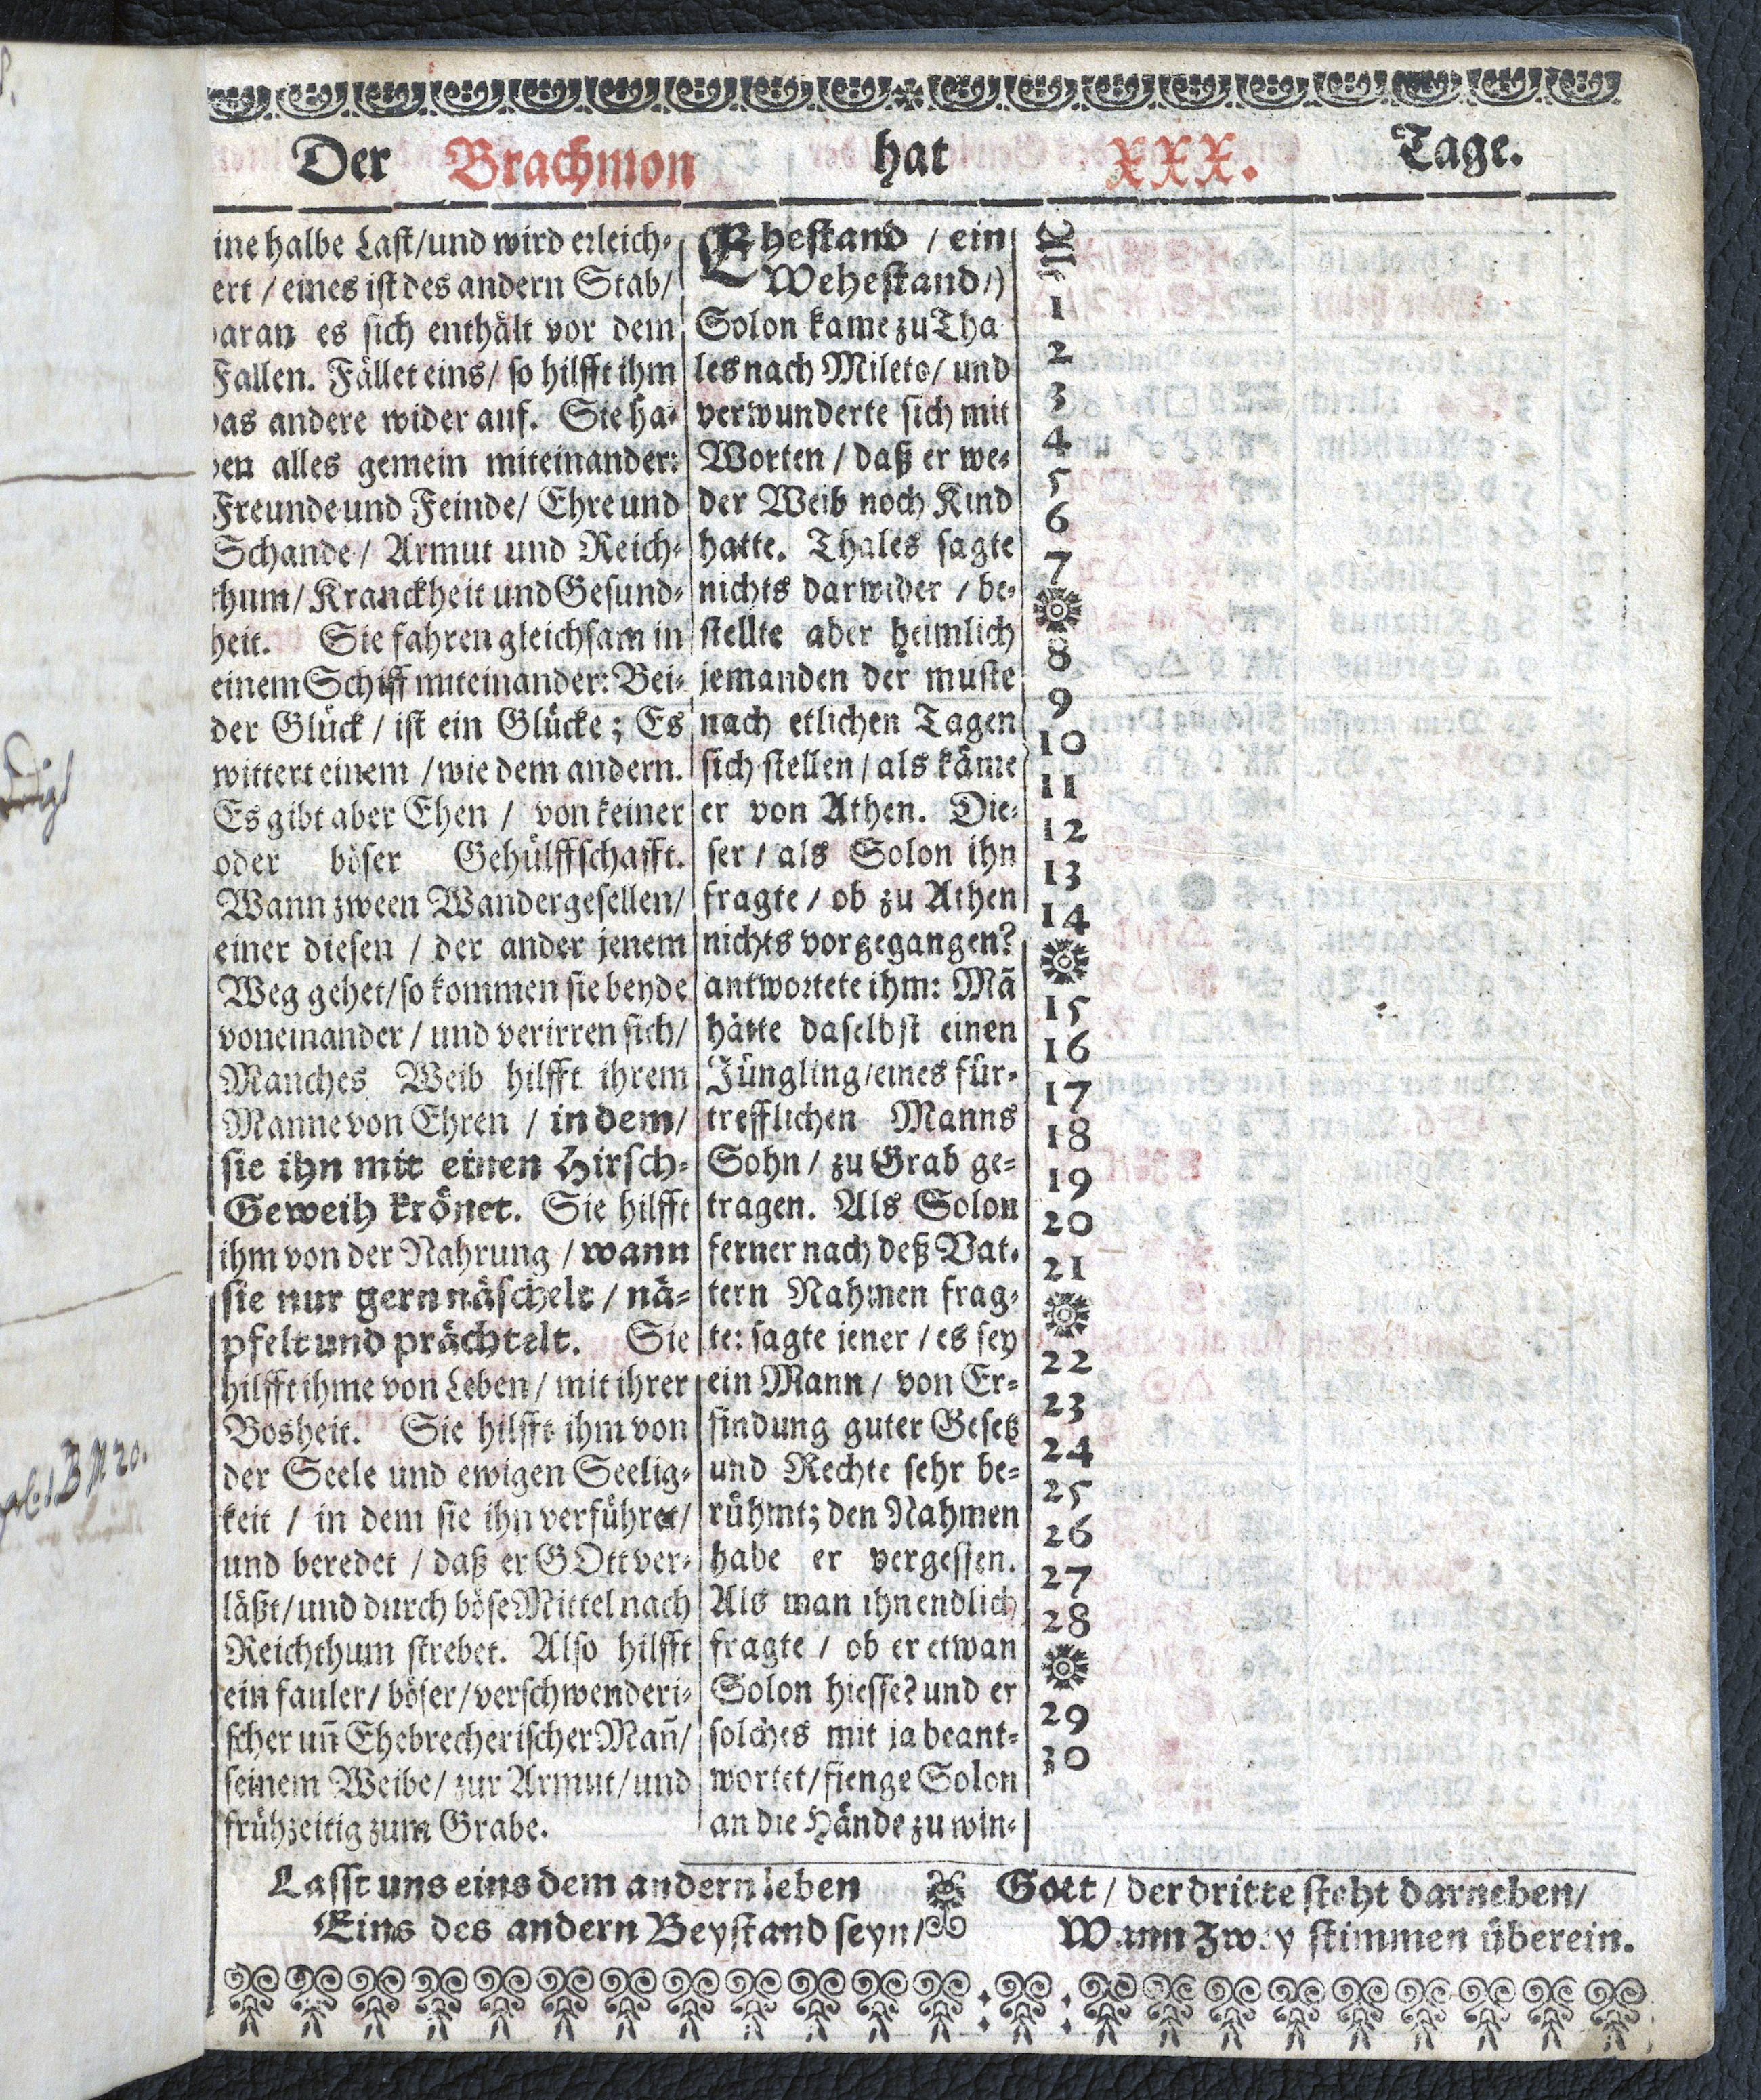 Der Brachmon hat XXX. Tage.
ine halbe Last/und wird erleich-
ert / eines ist des andern Stab/
aran es sich enthält vor dem
Fallen. Fället eins/ so hilfft ihm
as andere wider auf. Sie ha-
en alles gemein miteinander:
Freunde und Feinde/ Ehre und
Schande/ Armut und Reich-
thum/ Kranckheit und Gesund-
heit. Sie fahren gleichsam in
einem Schiff miteinander: Bei-
der Glück / ist ein Glücke; Es
wittert einem / wie dem andern.
Es gibt aber Ehen / von keiner
oder böser Gehülffschafft.
Wann zween Wandergesellen/
einer diesen / der ander jenem
Weg gehet/ so kommen sie beyde
voneinander / und verirren sich/
Manches Weib hilfft ihrem
Manne von Ehren / in dem/
sie ihn mit einen Hirsch-
Geweih krönet. Sie hilfft
ihm von der Nahrung / wann
sie nur gern näschelt / nä-
pfelt und prächtelt. Sie
hilfft ihme von Leben / mit ihrer
Bosheit. Sie hilfft ihm von
der Seele und ewigen Seelig-
keit / in dem sie ihn verführet/
und beredet / daß er GOtt ver-
läßt/ und durch böse Mittel nach
Reichthum strebet. Also hilfft
ein fauler/ böser/ verschwenderi-
scher un̄ Ehebrecherischer Man̄/
seinem Weibe/ zur Armut/ und
frühzeitig zum Grabe.
Ehestand / ein
Wehestand/)
Solon kame zu Tha
les nach Mileto/ und
verwunderte sich mit
Worten / daß er we-
der Weib noch Kind
hatte. Thales sagte
nichts darwider / be-
stellte aber heimlich
jemanden der muste
nach etlichen Tagen
sich stellen / als käme
er von Athen. Die-
ser / als Solon ihn
fragte / ob zu Athen
nichts vorgegangen?
antwortete ihm: Mā
hätte daselbst einen
Jüngling/ eines für-
trefflichen Manns
Sohn / zu Grab ge-
tragen. Als Solon
ferner nach deß Vat-
tern Nahmen frag-
te: sagte jener / es sey
ein Mann / von Er-
findung guter Gesetz
und Rechte sehr be-
rühmt; den Nahmen
habe er vergessen.
Als man ihn endlich
fragte / ob er etwan
Solon hiesse? und er
solches mit ja beant-
wortet/ fienge Solon
an die Hände zu win-
1
2
3
4
5
6
7
8
9
10
11
12
13
14
15
16
17
18
19
20
21
22
23
24
25
26
27
28
29
30
Lasst uns eins dem andern leben
Eins des andern Beystand seyn/
Gott / der dritte steht darneben/
Wann zwey stimmen überein.